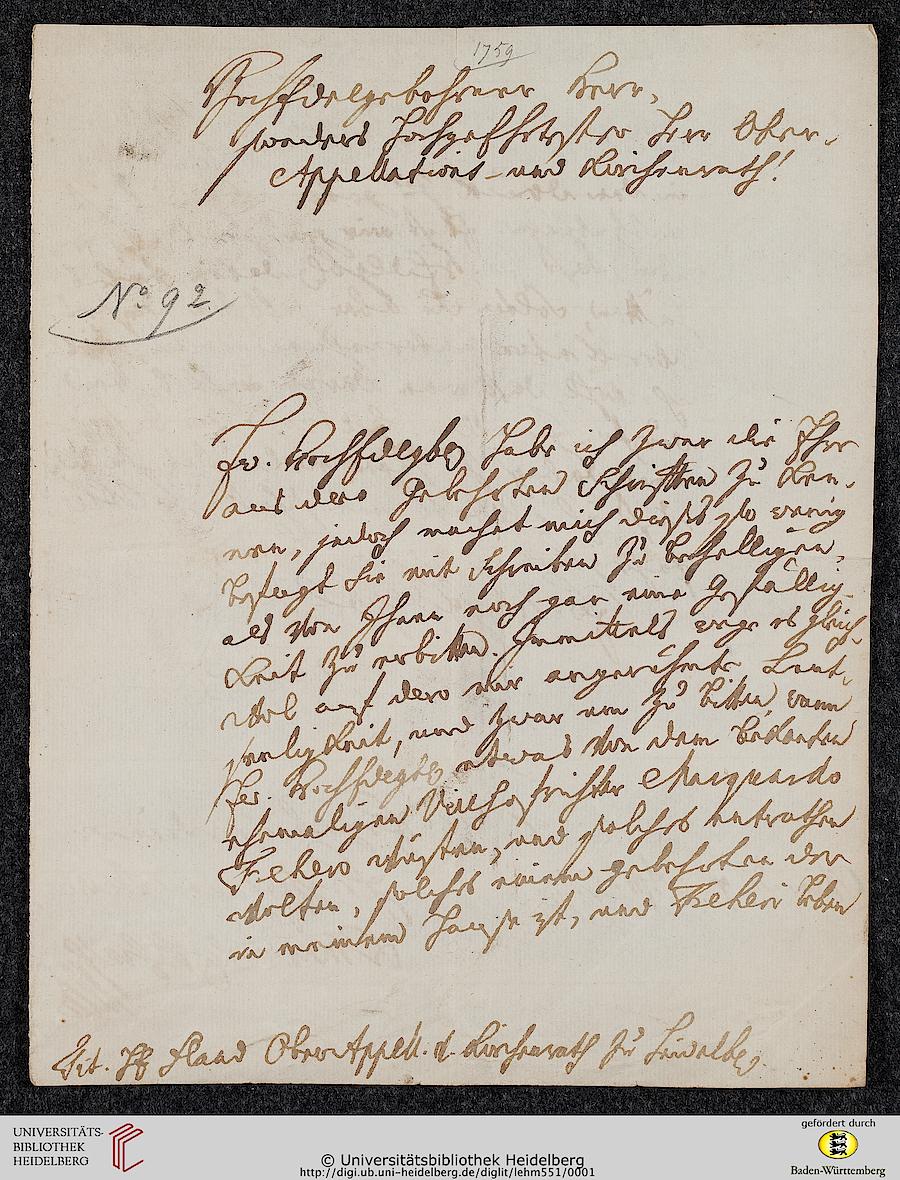 1759
HochEdelgebohrner Herr,
sonders Hochgeehrtester Herr Ober-
Appellations- und Kirchenrath!
No. 92.
Ew. HochEdelgb habe ich zwar die Ehre
aus dero gelehrten Schrifften zu ken-
nen, jedoch machet mich dieses so wenig
befugt Sie mit Schreiben zu behelligen,
als von Ihnen noch gar eine gefällig-
keit zu erbitten. Immittels wage es gleich-
wol auf dero mir angerühmte Leut-
seeligkeit, und zwar um zu bitten, wann
Ew. HochEdlgb etwas von dem bekanten
ehemaligen Marquardo
Frehero wüsten, und solches entrathen
wolten, solches einem gelehrten der
in meinem Hause ist, und Freheri leben
Tit. HE Flaad OberAppell. u. Kirchenrath zu Heidelbg.
UNIVERSITÄTS-
BIBLIOTHEK
HEIDELBERG
© Universitätsbibliothek Heidelberg
http://digi.ub.uni-heidelberg.de/diglit/lehm551/0001
gefördert durch
Baden-Württemberg